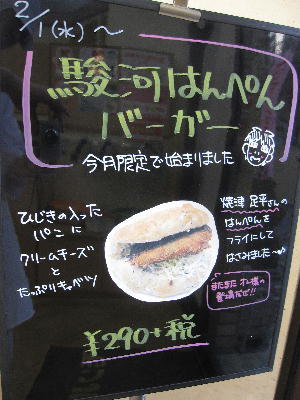 2/1(水)～
駿河はんぺん
バーガー
今月限定で始まりました
ひじきの入った
パンに
クリームチーズ
と
たっぷりキャベツ
焼津 足平さんの
はんぺんを
フライにして
はさみました～♪
またまた オレ様の
登場だぜ!!
¥290+税